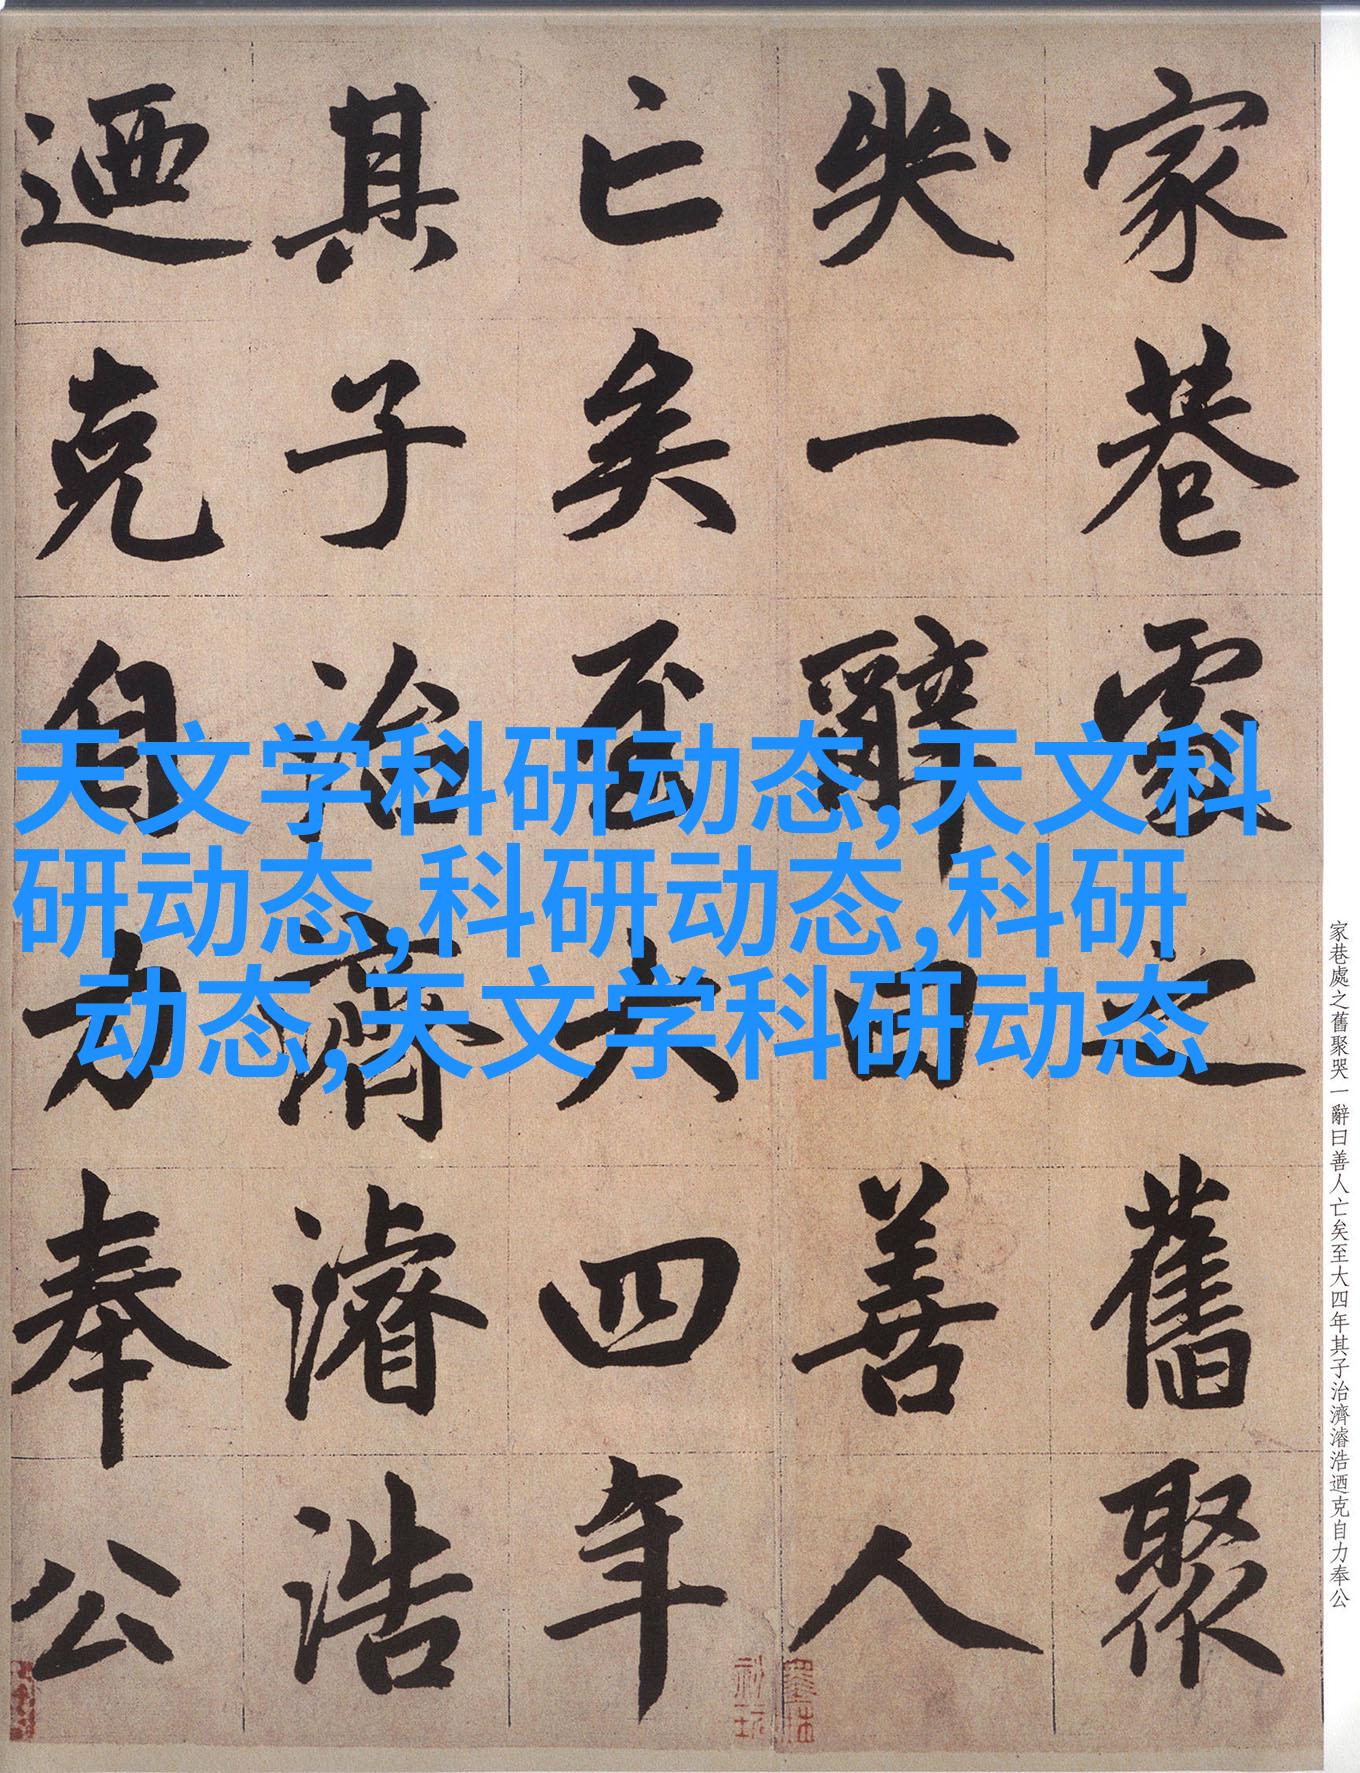 家巷處之舊聚
哭一辭曰善人
亡矣至大四年
其子治濟濬浩
迺克自力奉公
天文学科研动态,天文科
研动态,科研动态,科研
动态,天文学科研动态
家巷處之舊聚哭一辭曰善人亡矣至大四年其子治濟濬浩迺克自力奉公
墨林
秘玩